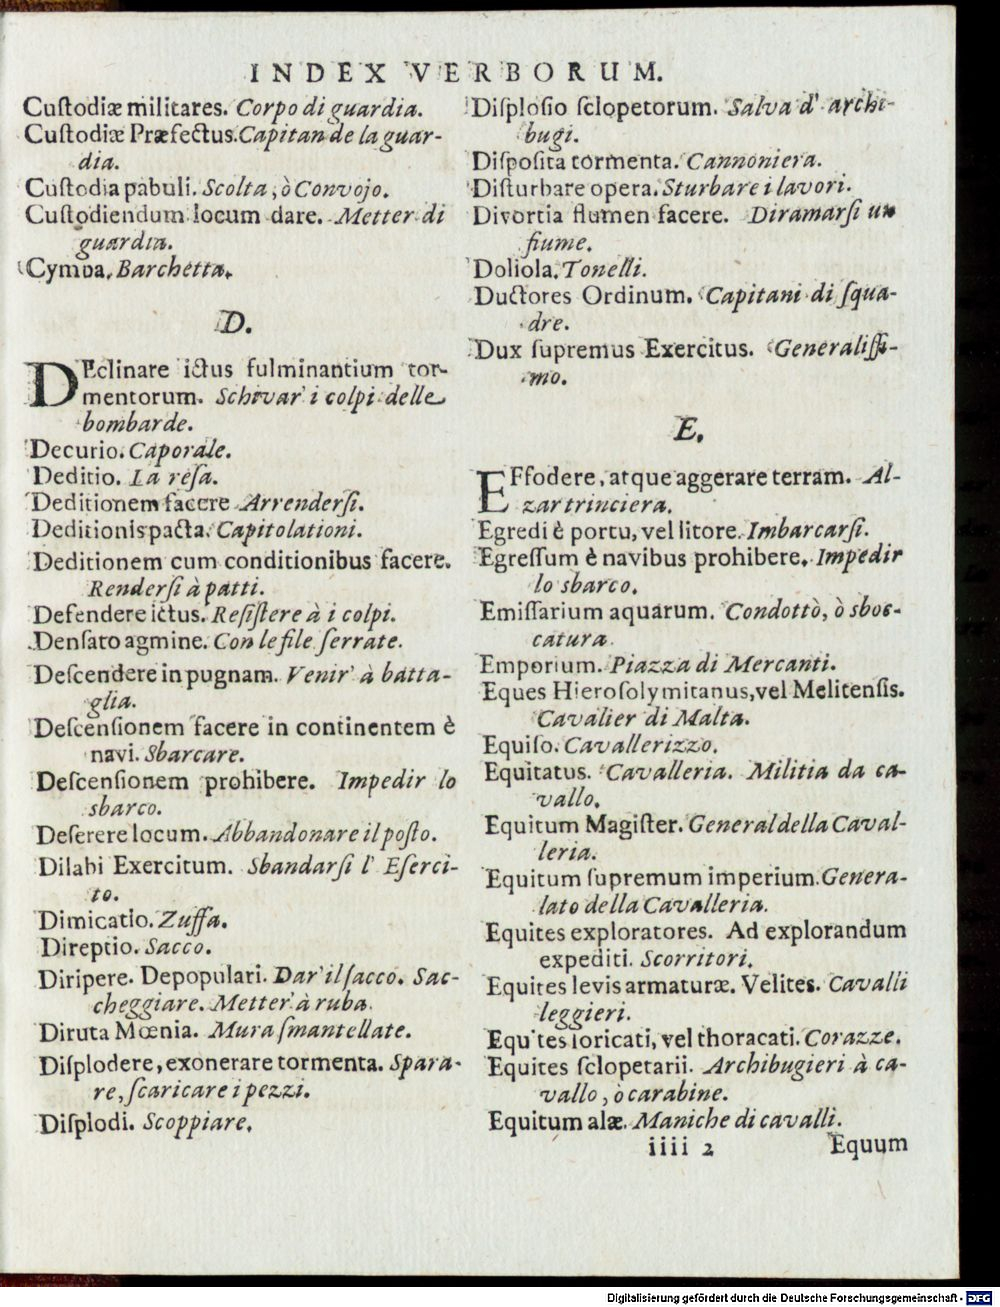 INDEX VERBORUM.
Cuſtodiæ militares. Corpo di guardia.
Cuſtodiæ Præfectus. Capitan de la guar-
dia.
Cuſtodia pabuli. Scolta, ò Convojo.
Cuſtodiendum locum dare. Metter di
guardia.
Cymba. Barchetta.
D.
DEclinare ictus fulminantium tor-
mentorum. Schivar' i colpi delle
bombarde.
Decurio. Caporale.
Deditio. La reſa.
Deditionem facere Arrenderſi.
Deditionis pacta. Capitolationi.
Deditionem cum conditionibus facere.
Renderſi à patti.
Defendere ictus. Reſiſtere à i colpi.
Denſato agmine. Con le file ſerrate.
Deſcendere in pugnam. Venir' à batta-
glia.
Deſcenſionem facere in continentem è
navi. Sbarcare.
Deſcenſionem prohibere. Impedir lo
sbarco.
Deſerere locum. Abbandonare il poſto.
Dilabi Exercitum. Sbandarſi l' Eſerci-
to.
Dimicatio. Zuffa.
Direptio. Sacco.
Diripere. Depopulari. Dar' il ſacco. Sac-
cheggiare. Metter' à ruba.
Diruta Mœnia. Mura ſmantellate.
Diſplodere, exonerare tormenta. Spara-
re, ſcaricare i pezzi.
Diſplodi. Scoppiare.
Diſploſio ſclopetorum. Salva d' archi-
bugi.
Diſpoſita tormenta. Cannoniera.
Diſturbare opera. Sturbare i lavori.
Divortia flumen facere. Diramarſi un
fiume.
Doliola. Tonelli.
Ductores Ordinum. Capitani di ſqua-
dre.
Dux ſupremus Exercitus. Generaliſſi-
mo.
E.
EFfodere, atque aggerare terram. Al-
zar trinciera.
Egredi è portu, vel litore. Imbarcarſi.
Egreſſum è navibus prohibere. Impedir
lo sbarco.
Emiſſarium aquarum. Condotto, ò sboc-
catura.
Emporium. Piazza di Mercanti.
Eques Hieroſolymitanus, vel Melitenſis.
Cavalier di Malta.
Equiſo. Cavallerizzo.
Equitatus. Cavalleria. Militia da ca-
vallo.
Equitum Magiſter. General della Caval-
leria.
Equitum ſupremum imperium. Genera-
lato della Cavalleria.
Equites exploratores. Ad explorandum
expediti. Scorritori.
Equites levis armaturæ. Velites. Cavalli
leggieri.
Equites loricati, vel thoracati. Corazze.
Equites ſclopetarii. Archibugieri à ca-
vallo, ò carabine.
Equitum alæ. Maniche di cavalli.
iiii 2 Equum
Digitalisierung gefördert durch die Deutsche Forschungsgemeinschaft - DFG